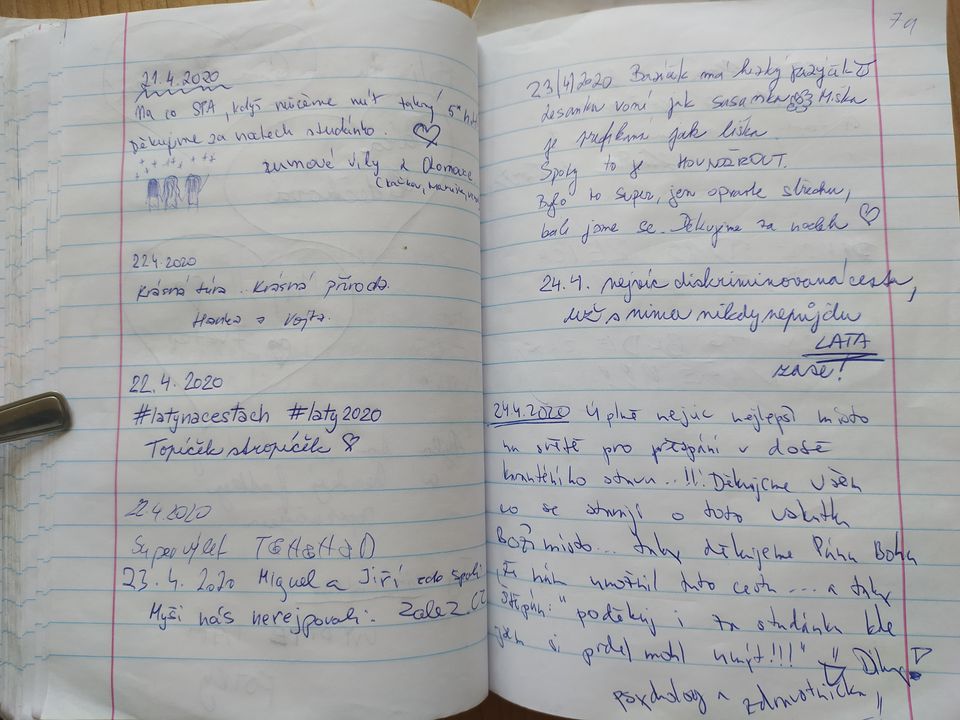 21.4.2020
Na co SPA, když můžeme mít takový 5*
Děkujeme za nátech studánko. ♡
z Olomouce
22.4.2020
Krásná túra. Krásná příroda.
Hanka a Vojta.
22.4.2020
#latynacestách #laty2020
Topíček stropíček
22.4.2020
Super výlet
23.4.2020 Miguel a Jiří zde spali
Myši nás nerejpovali.
79
23(4)2020 má hezký jazýček
voní jak sasanka Miška
je jak liška
Spolu to je
Bylo to super, jen opravte střechu,
báli jsme se. Děkujeme za nocleh ♡
24.4. nejvíc diskriminovaná cesta,
už s nima nikdy nepůjdu
LATA
zase!
24.4.2020 Úplně nejvíc nejlepší místo
na světě pro přespání v době
stavu..!!! Děkujeme všem
co se starají o toto
Boží místo... taky děkujeme Pánu Bohu
že nám umožnil tuto cestu.... a taky
Štěpán: "poděkuj i za studánku kde
jsem si prdel mohl umýt!!!" Díky
psycholog a zdravotnička